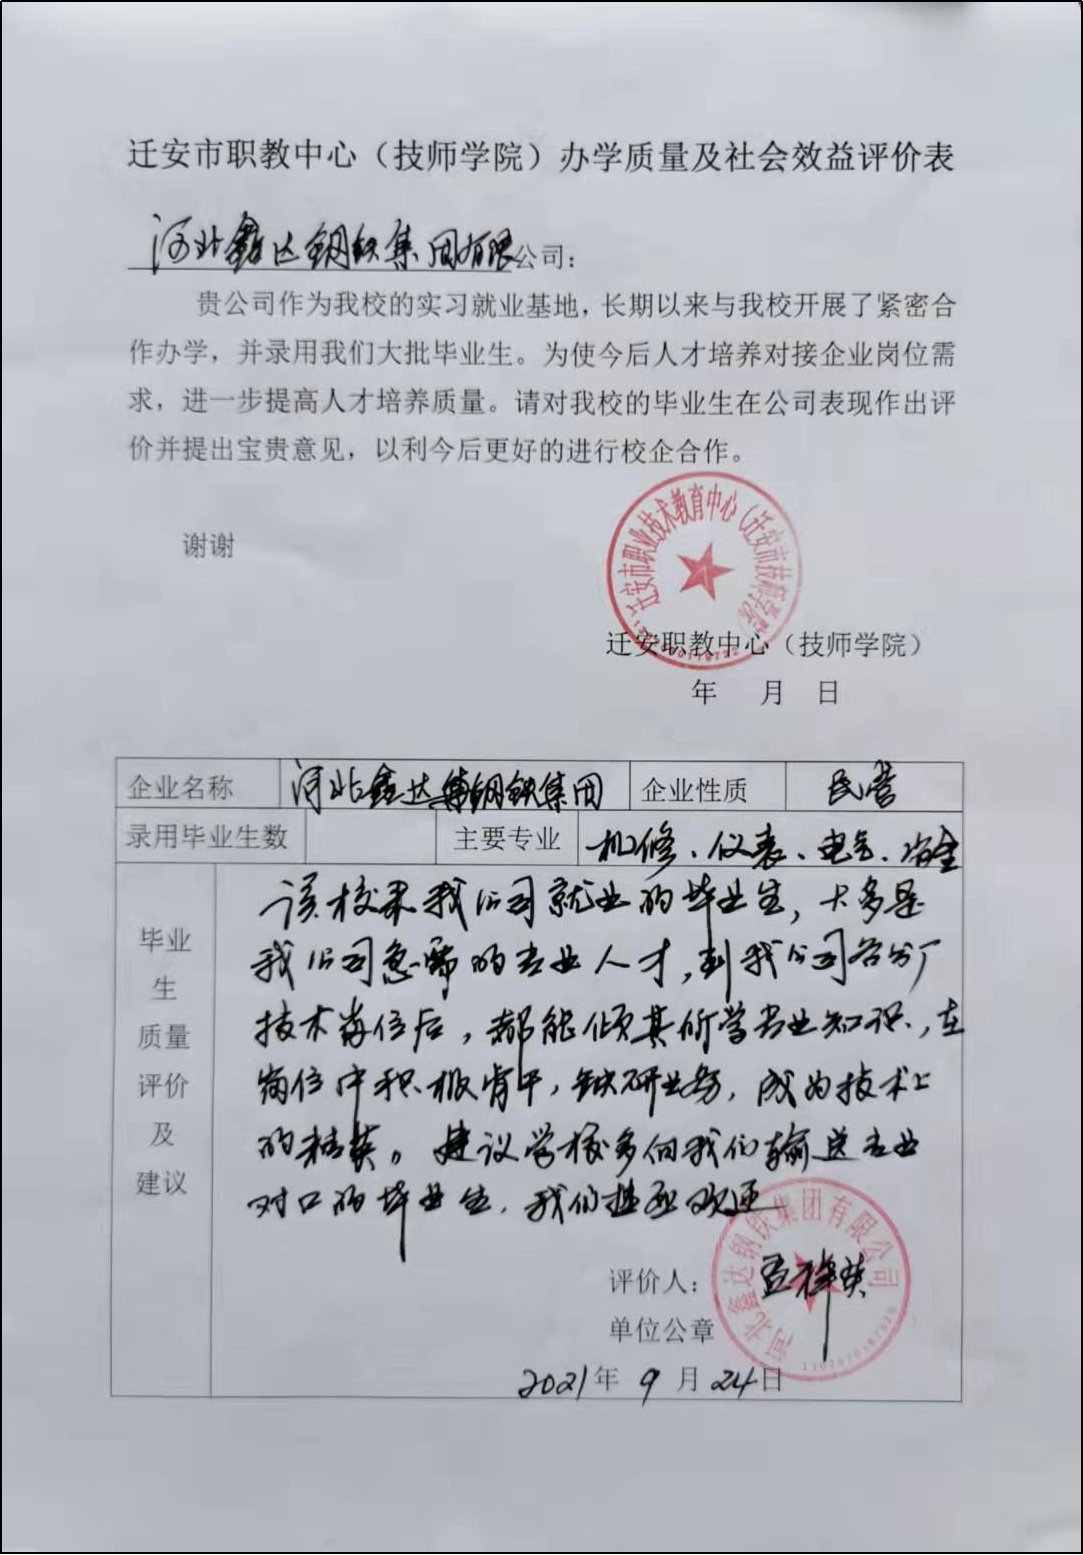 迁安市职教中心（技师学院）办学质量及社会效益评价表
河北鑫达钢铁集团有限公司：
贵公司作为我校的实习就业基地，长期以来与我校开展了紧密合
作办学，并录用我们大批毕业生。为使今后人才培养对接企业岗位需
求，进一步提高人才培养质量。请对我校的毕业生在公司表现作出评
价并提出宝贵意见，以利今后更好的进行校企合作。
谢谢
迁安市职业技术教育中心（迁安市技师学院）
迁安职教中心（技师学院）
年 月 日
企业名称 河北鑫达钢铁集团 企业性质 民营
录用毕业生数 主要专业 机修、仪表、电气、冶金
毕业
生
质量
评价
及
建议
该校来我公司就业的毕业生，大多是
我公司急需的专业人才，到我公司各分厂
技术岗位后，都能倾其所学专业知识，在
岗位中积极肯干，钻研业务，成为技术上
的精英。建议学校多向我们输送专业
对口的毕业生，我们热烈欢迎
河北鑫达钢铁集团有限公司
评价人：
单位公章
2021年9月24日